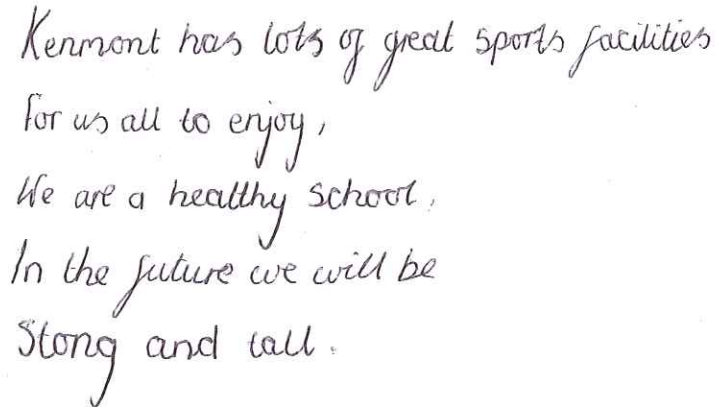 Kenmont has lots of great sports facilities
for us all to enjoy,
We are a healthy school,
In the future we will be
Stong and tall.